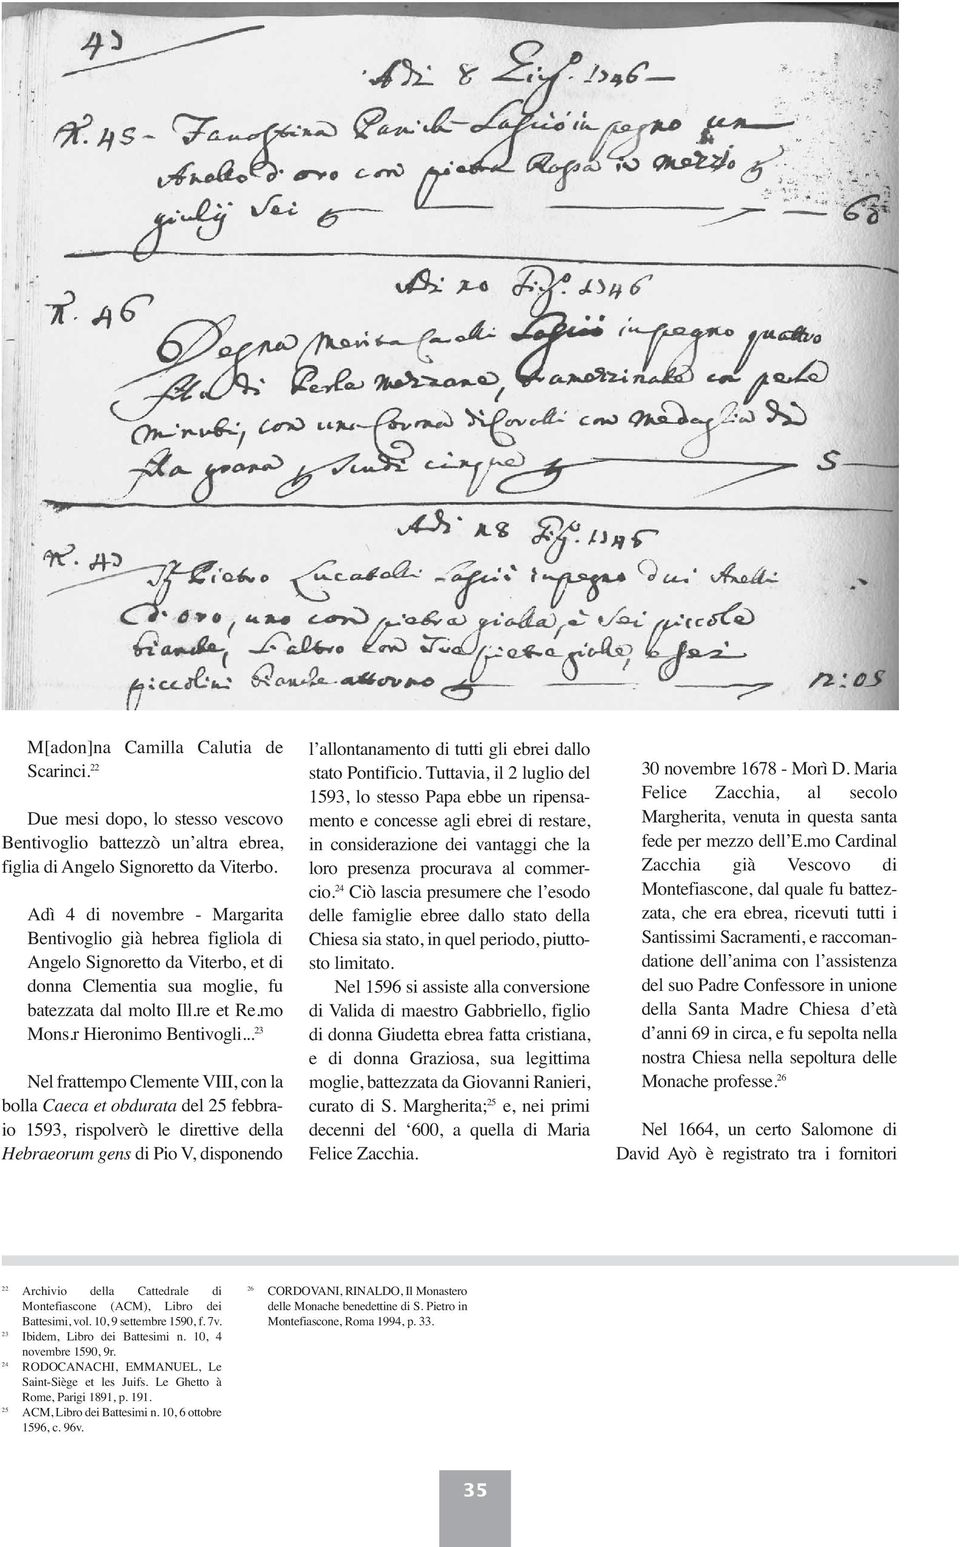 43
Adi 8 Giug.º 1746
N. 45 - Faustina Lasciò in pegno un
Anello d'oro con pietra Rossa in mezzo
giulij Sei 60
Adi 10 Giug.º 1746
N. 46
Degna Merita Lasciò in pegno quattro
fila di Perle mezzane, con perle
minuti, con una Corona di Coralli con medaglia di
fila grana Scudi cinque 5
Adi 18 Giug.º 1746
N. 47
Pietro Lucatelli Lasciò in pegno dui Anelli
d'oro, uno con pietra gialla, e Sei piccole
bianche, L'altro con Sua pietra e Sei
piccolini bianche attorno
M[adon]na Camilla Calutia de
Scarinci.22
Due mesi dopo, lo stesso vescovo
Bentivoglio battezzò un’altra ebrea,
figlia di Angelo Signoretto da Viterbo.
Adì 4 di novembre - Margarita
Bentivoglio già hebrea figliola di
Angelo Signoretto da Viterbo, et di
donna Clementia sua moglie, fu
batezzata dal molto Ill.re et Re.mo
Mons.r Hieronimo Bentivogli...23
Nel frattempo Clemente VIII, con la
bolla Caeca et obdurata del 25 febbra-
io 1593, rispolverò le direttive della
Hebraeorum gens di Pio V, disponendo
l’allontanamento di tutti gli ebrei dallo
stato Pontificio. Tuttavia, il 2 luglio del
1593, lo stesso Papa ebbe un ripensa-
mento e concesse agli ebrei di restare,
in considerazione dei vantaggi che la
loro presenza procurava al commer-
cio.24 Ciò lascia presumere che l’esodo
delle famiglie ebree dallo stato della
Chiesa sia stato, in quel periodo, piutto-
sto limitato.
Nel 1596 si assiste alla conversione
di Valida di maestro Gabbriello, figlio
di donna Giudetta ebrea fatta cristiana,
e di donna Graziosa, sua legittima
moglie, battezzata da Giovanni Ranieri,
curato di S. Margherita;25 e, nei primi
decenni del ‘600, a quella di Maria
Felice Zacchia.
30 novembre 1678 - Morì D. Maria
Felice Zacchia, al secolo
Margherita, venuta in questa santa
fede per mezzo dell’E.mo Cardinal
Zacchia già Vescovo di
Montefiascone, dal quale fu battez-
zata, che era ebrea, ricevuti tutti i
Santissimi Sacramenti, e raccoman-
datione dell’anima con l’assistenza
del suo Padre Confessore in unione
della Santa Madre Chiesa d’età
d’anni 69 in circa, e fu sepolta nella
nostra Chiesa nella sepoltura delle
Monache professe.26
Nel 1664, un certo Salomone di
David Ayò è registrato tra i fornitori
22 Archivio della Cattedrale di
Montefiascone (ACM), Libro dei
Battesimi, vol. 10, 9 settembre 1590, f. 7v.
23 Ibidem, Libro dei Battesimi n. 10, 4
novembre 1590, 9r.
24 RODOCANACHI, EMMANUEL, Le
Saint-Siège et les Juifs. Le Ghetto à
Rome, Parigi 1891, p. 191.
25 ACM, Libro dei Battesimi n. 10, 6 ottobre
1596, c. 96v.
26 CORDOVANI, RINALDO, Il Monastero
delle Monache benedettine di S. Pietro in
Montefiascone, Roma 1994, p. 33.
35